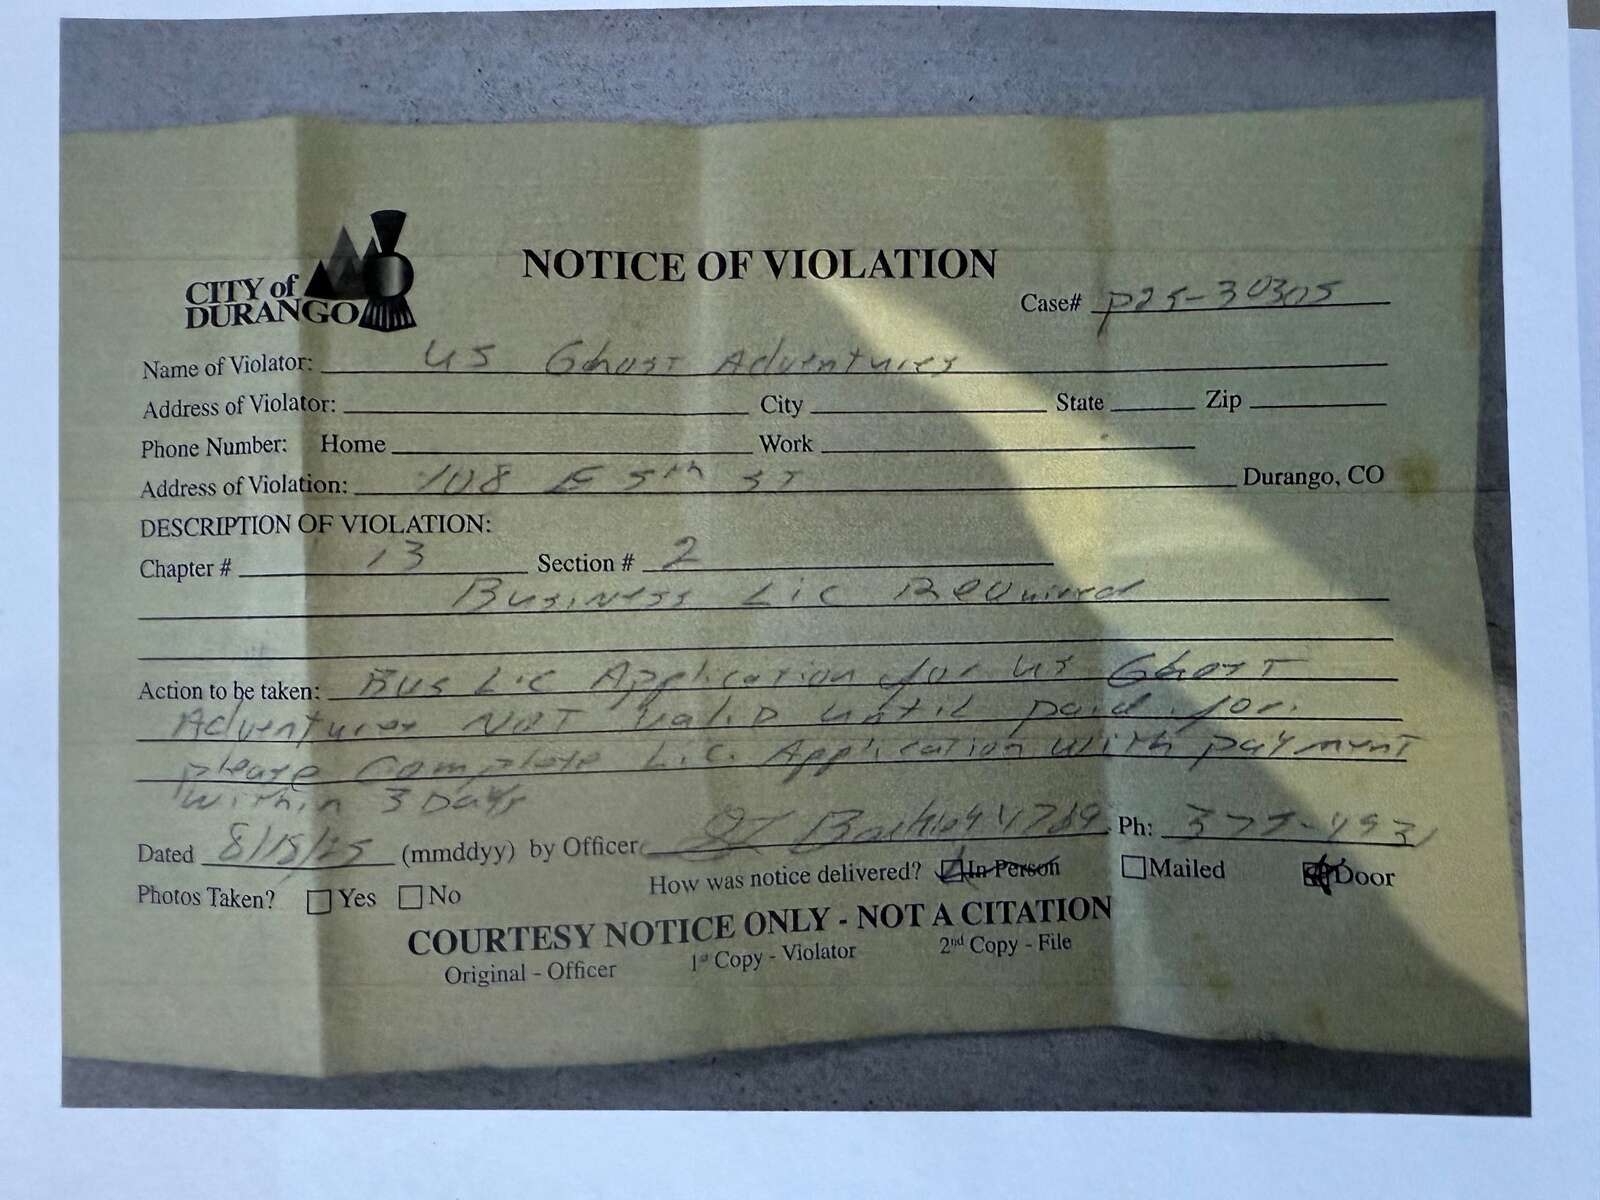 CITY of
DURANGO
NOTICE OF VIOLATION
Case# P25-30305
Name of Violator: US Ghost Adventures
Address of Violator: City State Zip
Phone Number: Home Work
Address of Violation: 108 E 5th ST Durango, CO
DESCRIPTION OF VIOLATION:
Chapter # 13 Section # 2
Business Lic Required
Action to be taken: Bus Lic Application for US Ghost
Adventures NOT valid until paid for.
please complete Lic. Application with payment
within 3 Days
Dated 8/18/25 (mmddyy) by Officer Ph: 375-4931
Photos Taken? Yes No How was notice delivered? In Person Mailed Door
COURTESY NOTICE ONLY - NOT A CITATION
Original - Officer 1st Copy - Violator 2nd Copy - File